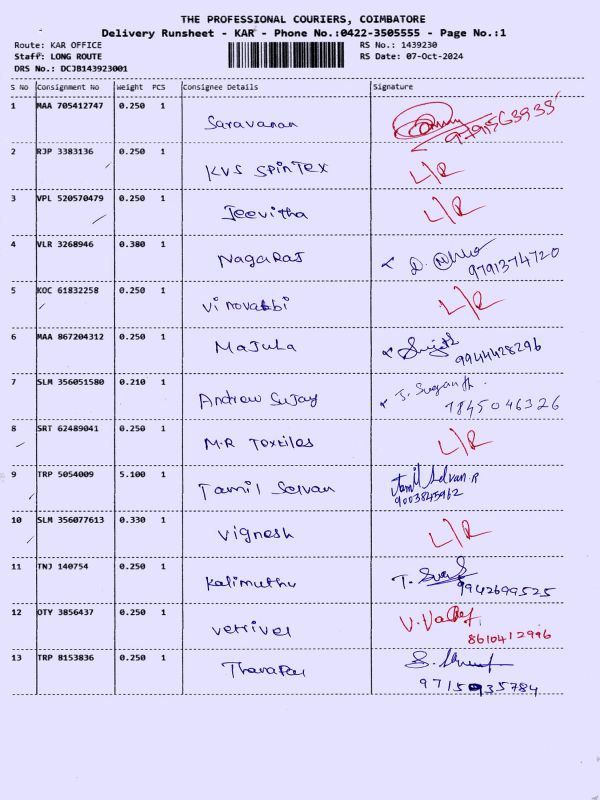 THE PROFESSIONAL COURIERS, COIMBATORE
Delivery Runsheet - KAR - Phone No.:0422-3505555 - Page No.:1
Route: KAR OFFICE RS No.: 1439230
Staff: LONG ROUTE RS Date: 07-Oct-2024
DRS No.: DCJB143923001
S No Consignment No Weight PCS Consignee Details Signature
1 MAA 705412747 0.250 1 Saravanan
2 RJP 3383136 0.250 1 KVS SPINTEX L/R
3 VPL 520570479 0.250 1 Jeevitha L/R
4 VLR 3268946 0.380 1 NagaRaj D.
9791374720
5 KOC 61832258 0.250 1 L/R
6 MAA 867204312 0.250 1 MaJula
9944428296
7 SLM 356051580 0.210 1 Andrew Sujay J. Suganth.
7845046326
8 SRT 62489041 0.250 1 M.R Textiles L/R
9 TRP 5054009 5.100 1 Tamil Selvan Tamil Selvan.R
9003845962
10 SLM 356077613 0.330 1 Vignesh L/R
11 TNJ 140754 0.250 1 Kalimuthu T.
9942699525
12 OTY 3856437 0.250 1 Vetrivel V.
8610412996
13 TRP 8153836 0.250 1 S.